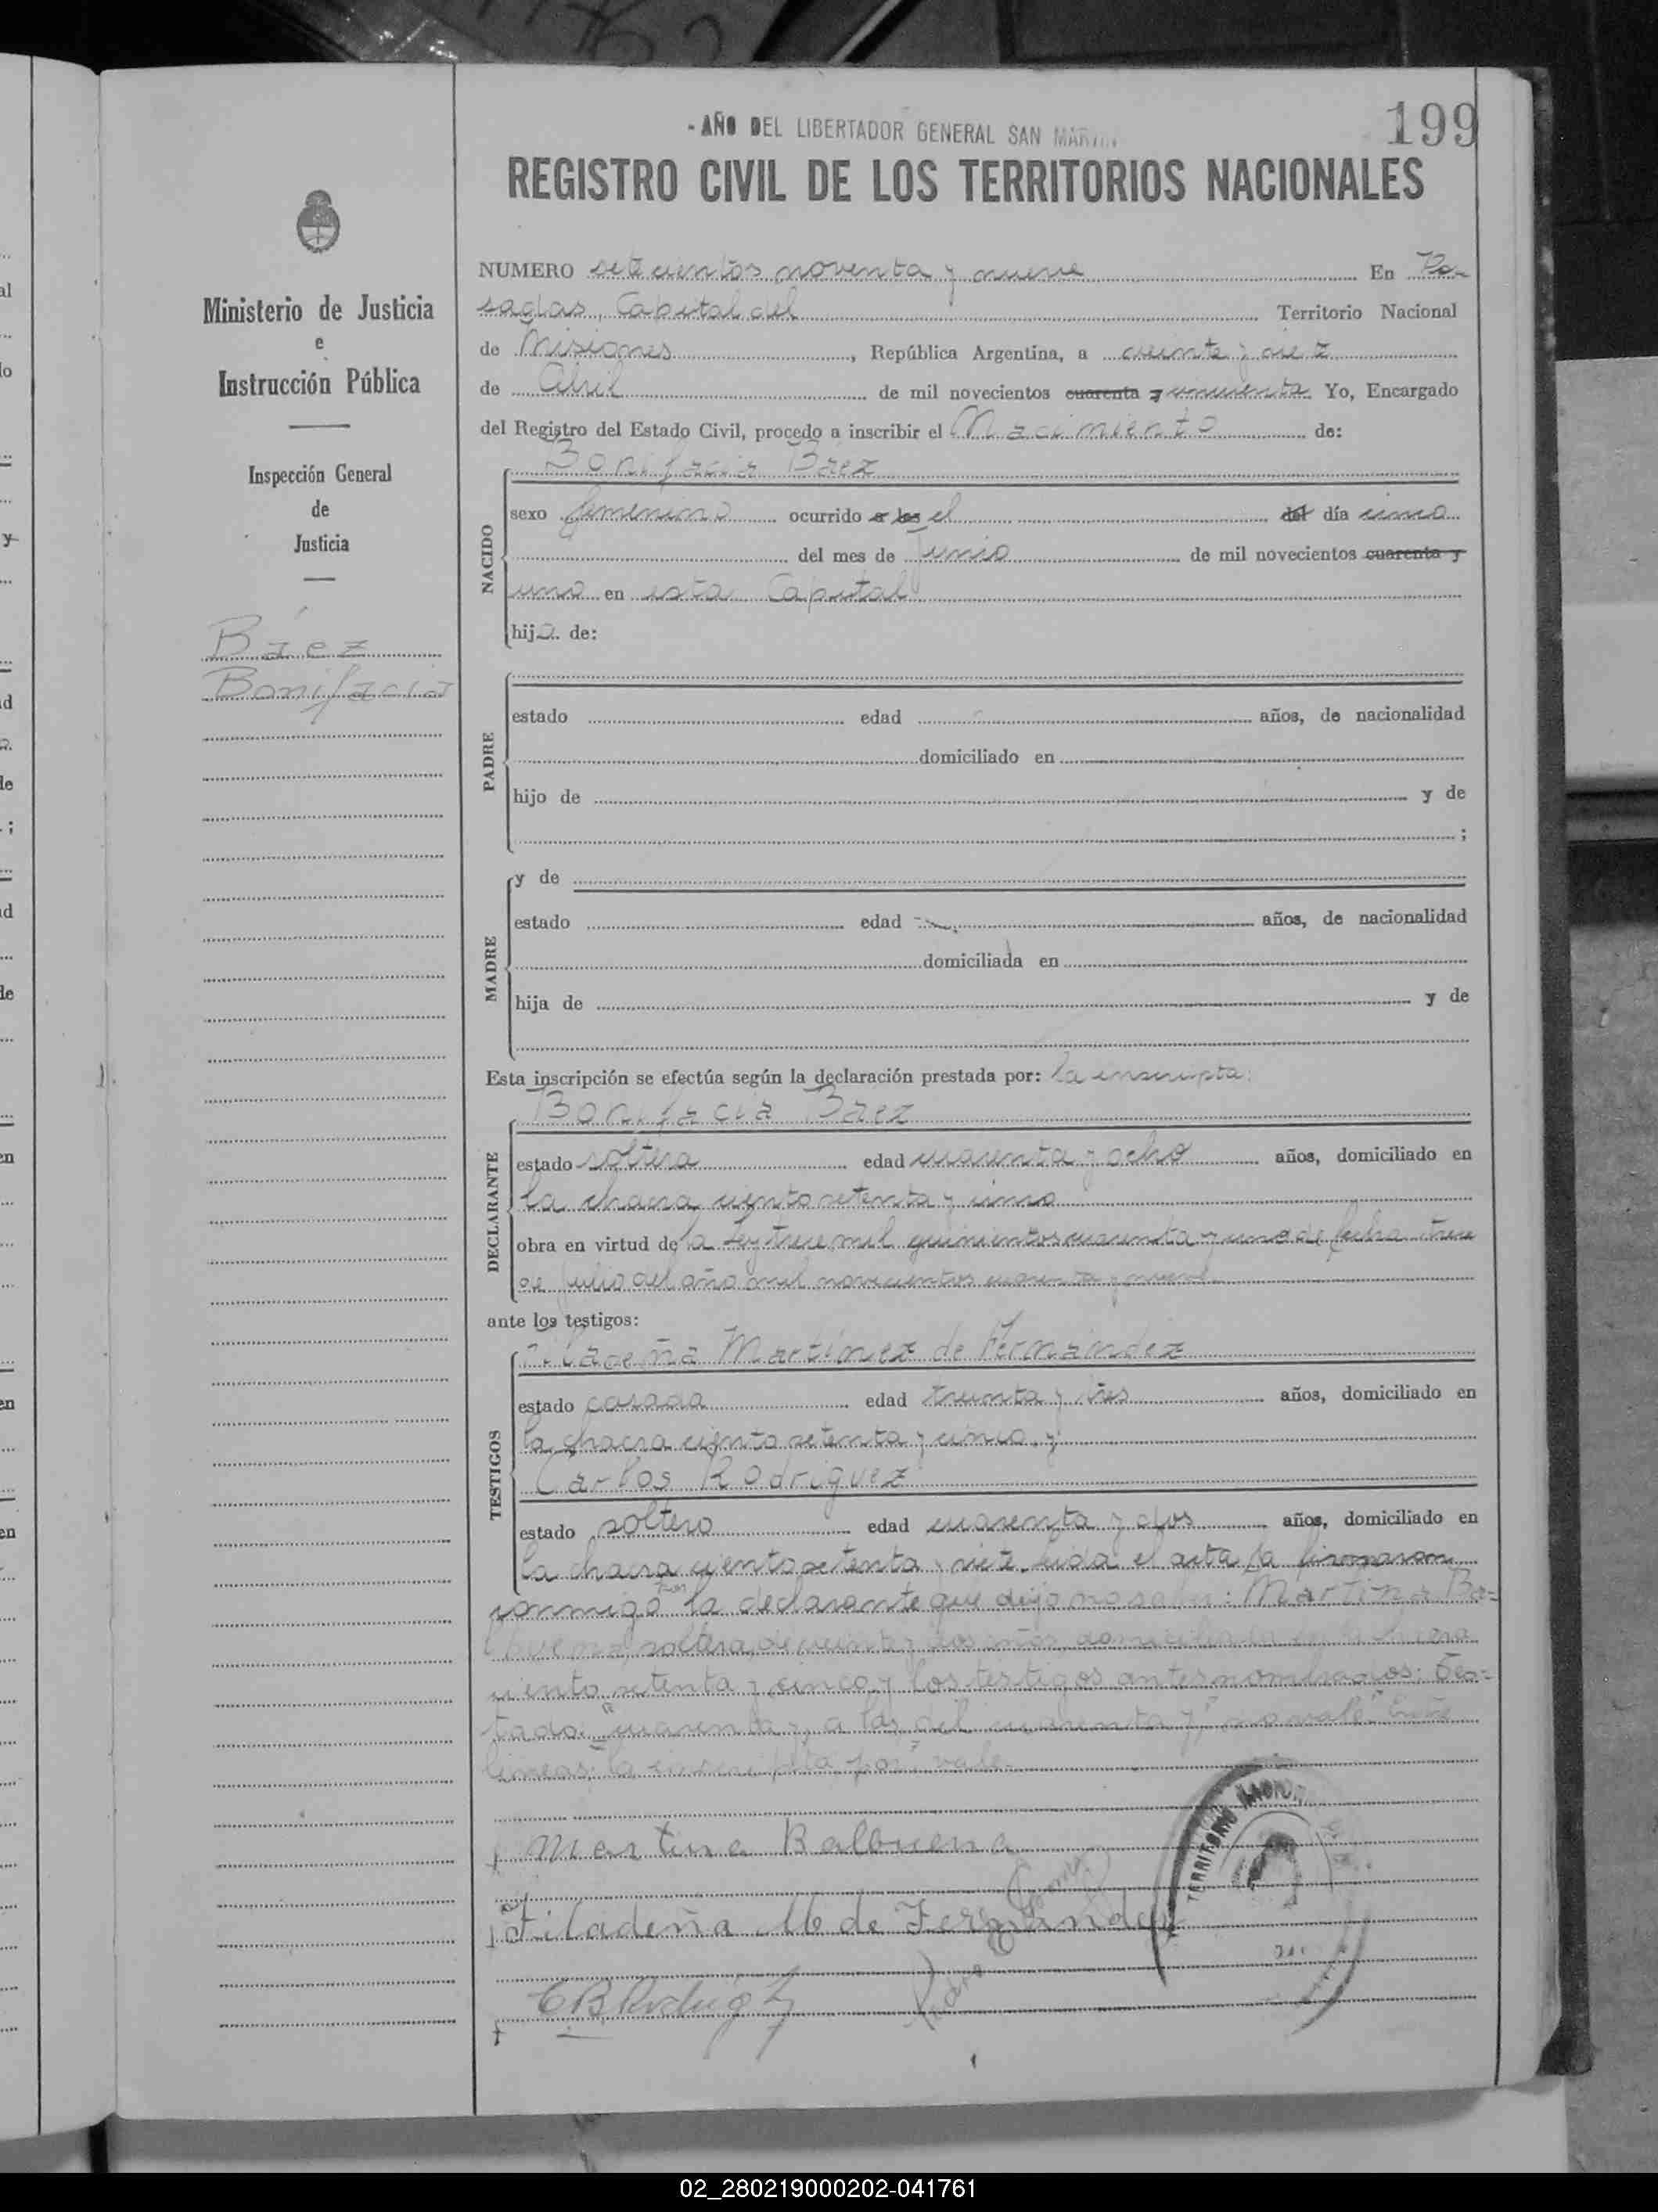 - AÑO DEL LIBERTADOR GENERAL SAN MARTIN
199
REGISTRO CIVIL DE LOS TERRITORIOS NACIONALES
Ministerio de Justicia
e
Instrucción Pública
Inspección General
de
Justicia
Báez
Bonifacia
NUMERO setecientos noventa y nueve En Po-
sadas, Capital del Territorio Nacional
de Misiones, República Argentina, a veinte y siete
de Abril de mil novecientos cuarenta y cincuenta Yo, Encargado
del Registro del Estado Civil, procedo a inscribir el Nacimiento de:
Bonifacia Báez
NACIDO
sexo femenino ocurrido a las el del día cinco
del mes de Junio de mil novecientos cuarenta y
uno en esta Capital
hija de:
PADRE
estado edad años, de nacionalidad
domiciliado en
hijo de y de
;
MADRE
y de
estado edad años, de nacionalidad
domiciliada en
hija de y de
Esta inscripción se efectúa según la declaración prestada por: la inscripta:
Bonifacia Báez
DECLARANTE
estado soltera edad cuarenta y ocho años, domiciliado en
la chacra ciento setenta y cinco
obra en virtud de la Ley trece mil quinientos cuarenta y uno de fecha trece
de Julio del año mil novecientos cuarenta y nueve
ante los testigos:
TESTIGOS
Filadeña Martínez de Fernández
estado casada edad treinta y tres años, domiciliado en
la chacra ciento setenta y cinco, y
Carlos Rodriguez
estado soltero edad cuarenta y dos años, domiciliado en
la chacra ciento setenta y siete leida el acta la firmaron
conmigo por la declarante que dijo no saber: Martina Ba=
lbuena, soltera, de veinte y dos años, domiciliada en la chacra
ciento setenta y cinco y los testigos antes nombrados: Tes=
tado: "cuarenta y, a las, del cuarenta y," no vale." Entre
lineas: la inscripta, por" vale.
Martina Balbuena
Filadeña M de Fernandez
TERRITORIO NACIONAL
02_280219000202-041761